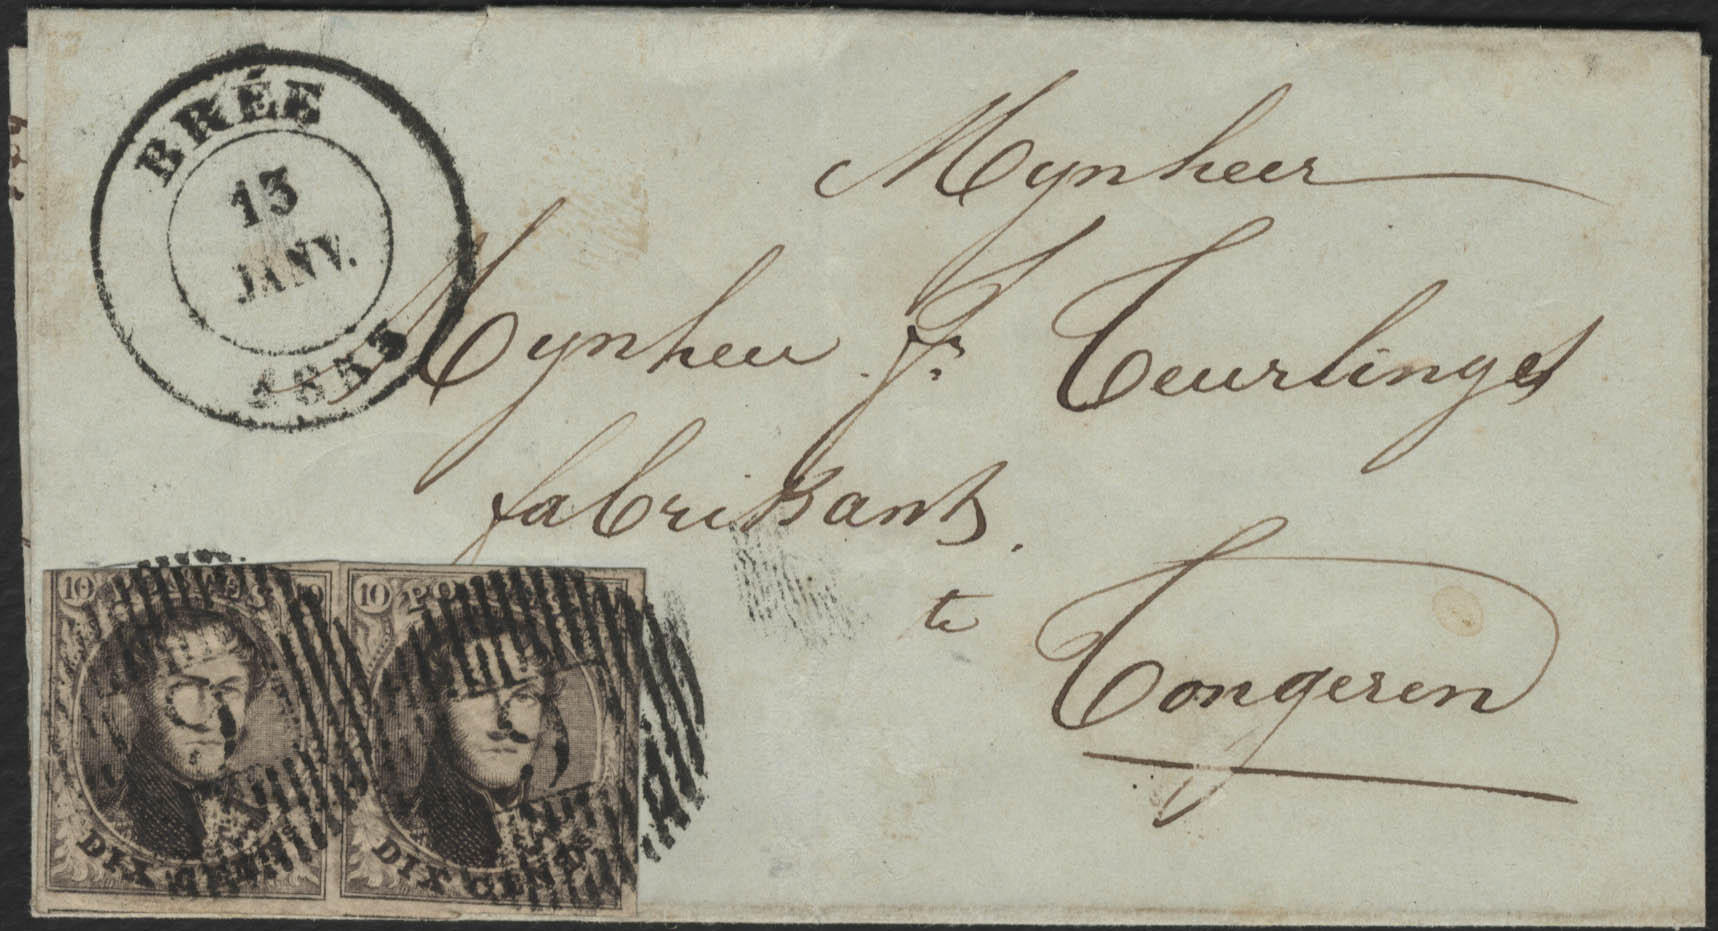 BRÉE
13
JANV.
Mynheer
Mynheer Jr. Teurlings
fabrikant.
te
Tongeren
10 10
10 POSTES
DIX CENTS
DIX CENTS